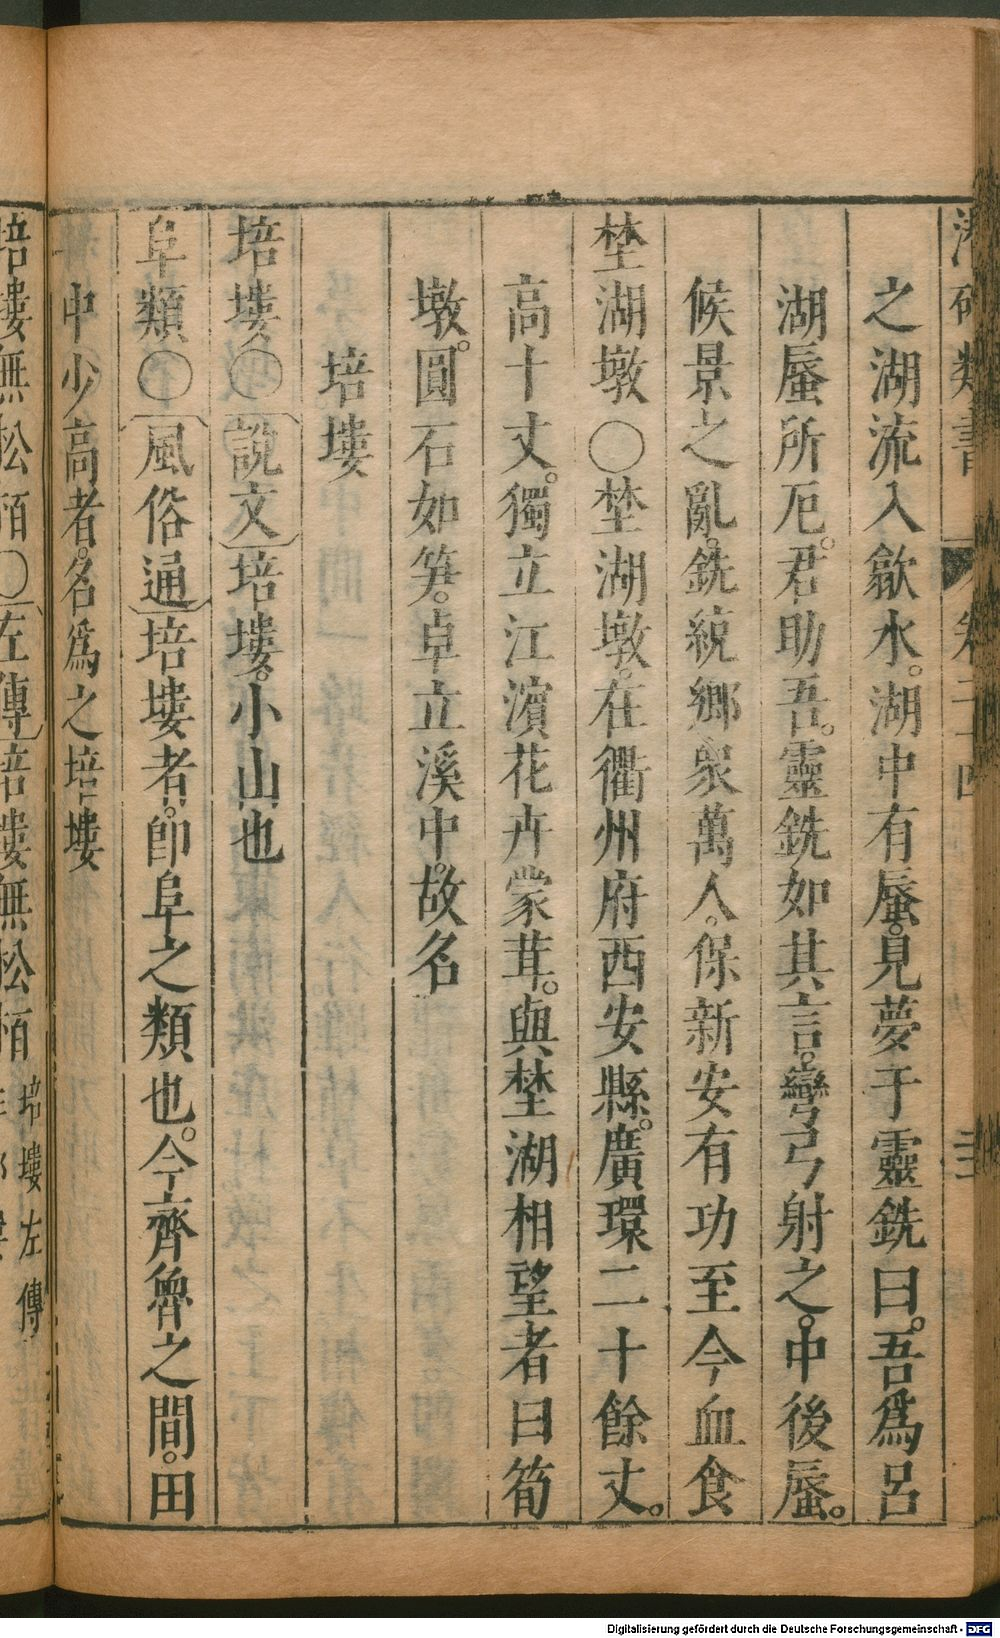 之湖流入歙水。湖中有蜃。見夢于靈銑曰。吾爲呂
湖蜃所厄。君助吾。靈銑如其言。彎弓射之。中後蜃。
候景之亂。銑統鄉眾萬人。保新安有功至今血食
埜湖墩○埜湖墩。在衢州府西安縣。廣環二十餘丈。
高十丈。獨立江濵花卉蒙茸。與埜湖相望者曰筍
墩。圓石如笋。卓立溪中。故名
培塿
培塿○說文培塿。小山也
阜類○風俗通培塿者。卽阜之類也。今齊魯之間。田
中少高者。名爲之培塿
培塿無松栢○左傳培塿無松栢
培塿左傳
卷二十四
Digitalisierung gefördert durch die Deutsche Forschungsgemeinschaft - DFG